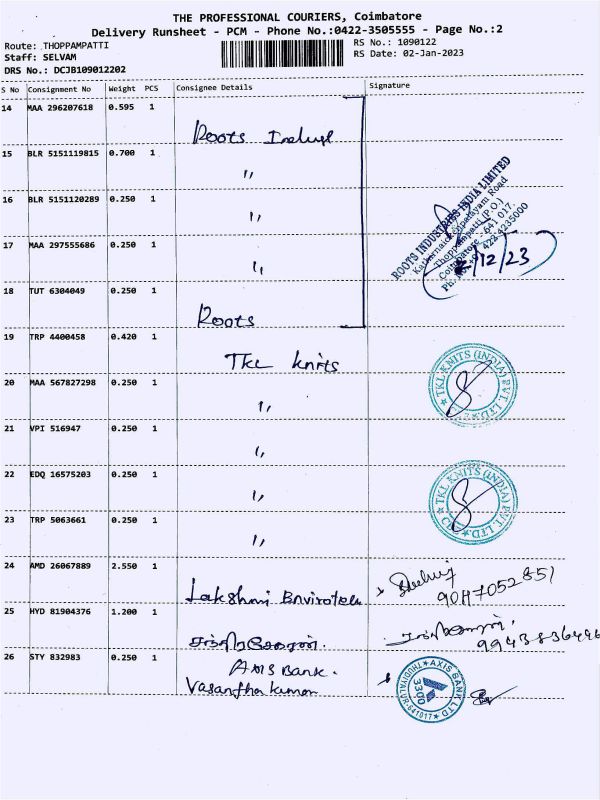 THE PROFESSIONAL COURIERS, Coimbatore
Delivery Runsheet - PCM - Phone No.:0422-3505555 - Page No.:2
Route: THOPPAMPATTI
RS No.: 1090122
Staff: SELVAM
RS Date: 02-Jan-2023
DRS No.: DCJB109012202
S No Consignment No Weight PCS Consignee Details Signature
14 MAA 296207618 0.595 1
Roots
15 BLR 5151119815 0.700 1
"
16 BLR 5151120289 0.250 1
"
ROOTS INDUSTRIES INDIA LIMITED
Thoppampatti (P.O.)
Coimbatore - 641 017.
17 MAA 297555686 0.250 1
"
/12/23
18 TUT 6304049 0.250 1
Roots
19 TRP 4400458 0.420 1
TKL knits
TKL KNITS (INDIA) PVT. LTD.
20 MAA 567827298 0.250 1
"
21 VPI 516947 0.250 1
"
22 EDQ 16575203 0.250 1
"
TKL KNITS (INDIA) PVT. LTD.
23 TRP 5063661 0.250 1
"
24 AMD 26067889 2.550 1
Lakshmi
25 HYD 81904376 1.200 1
26 STY 832983 0.250 1
AXIS Bank.
Vasantha kumar
AXIS BANK LTD
THUDIYALUR-641017
3300